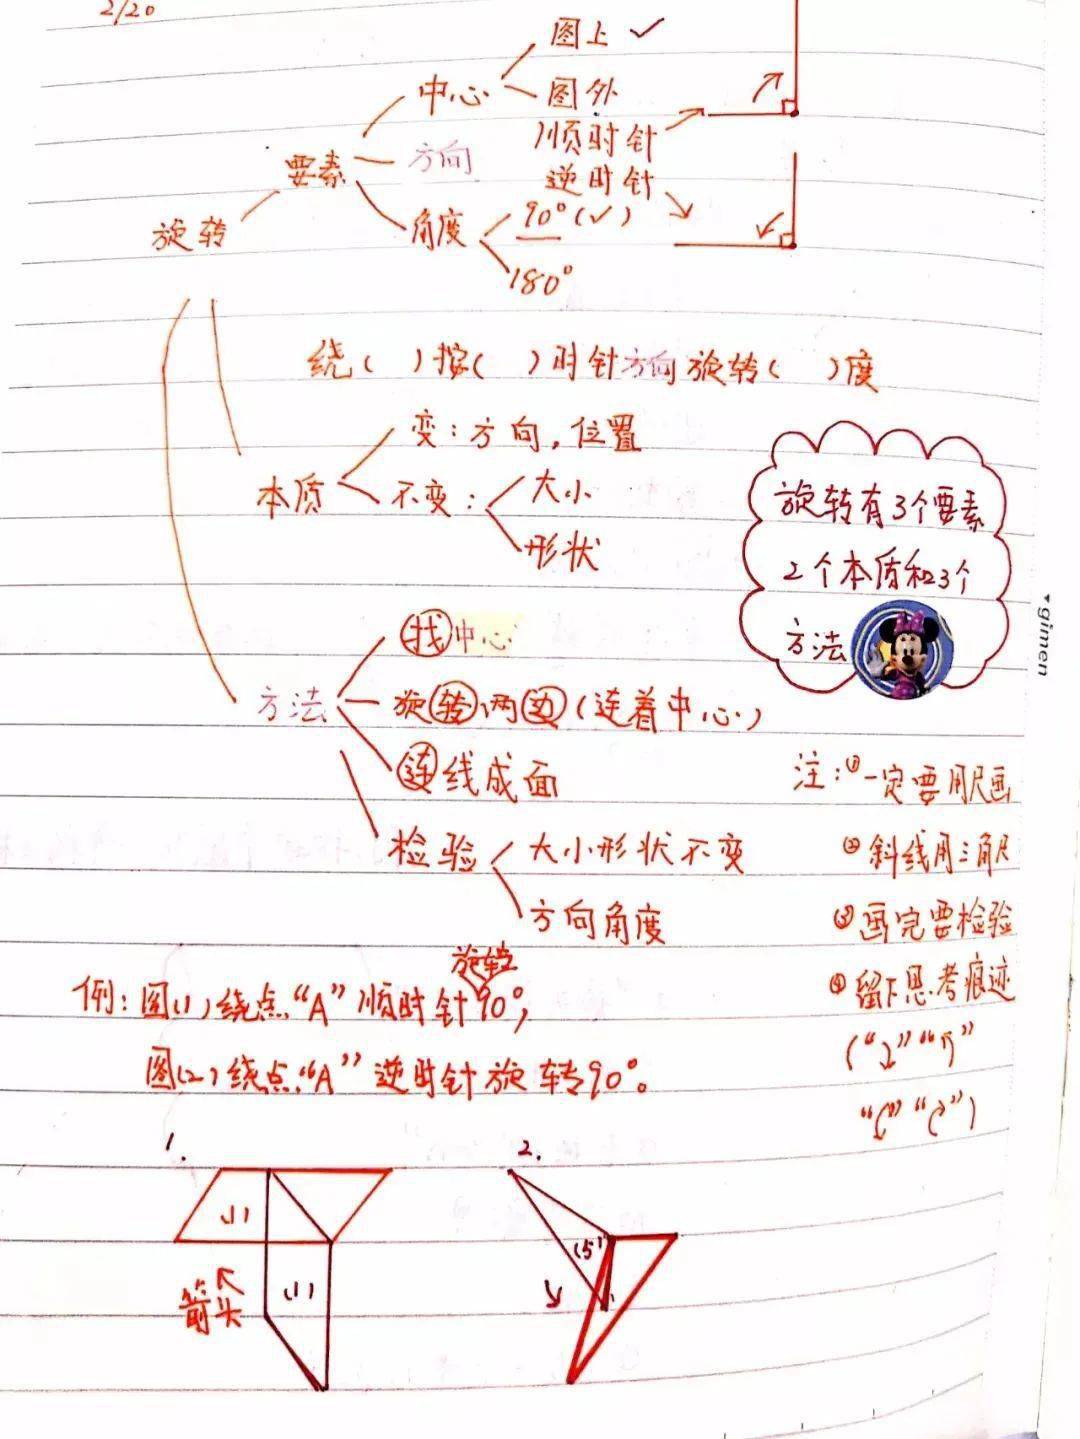 2/20
图上 ✓
中心
图外
顺时针
要素
方向
逆时针
旋转
角度
90°(✓)
180°
绕( )按( )时针方向旋转( )度
变:方向,位置
本质
不变:
大小
形状
旋转有3个要素
2个本质和3个
方法
gimen
找中心
方法
旋转两边(连着中心)
连线成面
注:①一定要用尺画
检验
大小形状不变
②斜线用三角尺
方向角度
③画完要检验
旋转
④留下思考痕迹
例:图(1)绕点“A”顺时针90°,
图(2)绕点“A”逆时针旋转90°。
1.
2.
(1)
(1)
(5)
箭头